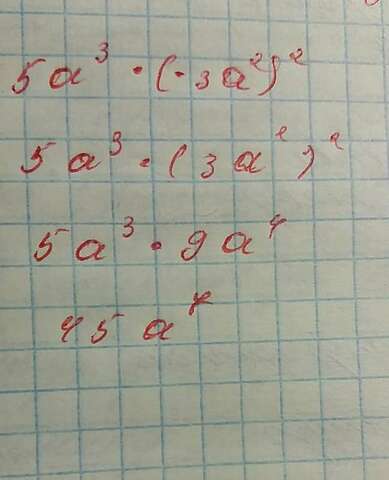 5a³ · (-3a²)²
5a³ · (3a²)²
5a³ · 9a⁴
45a⁷